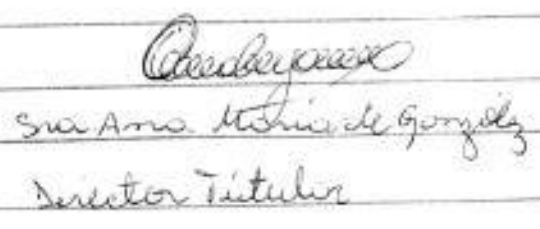 Sra Ana Maria de González
Director Titular